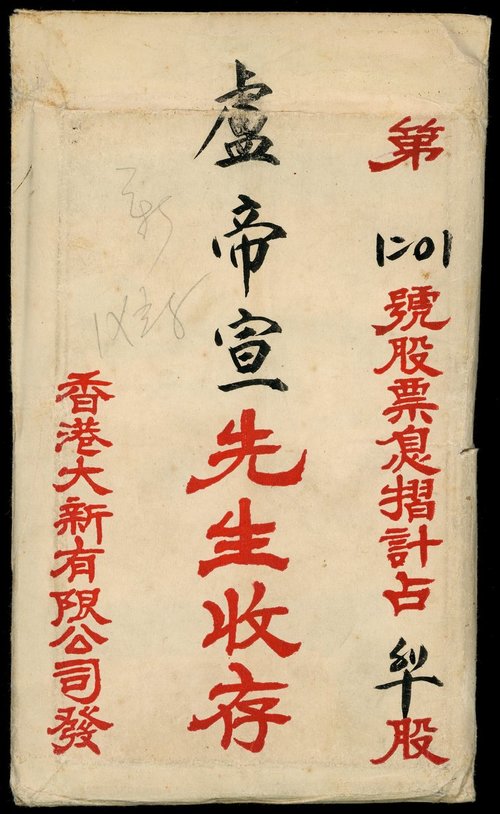 第〡二〇〡號股票息摺計占股
盧帝宣先生收存
香港大新有限公司發